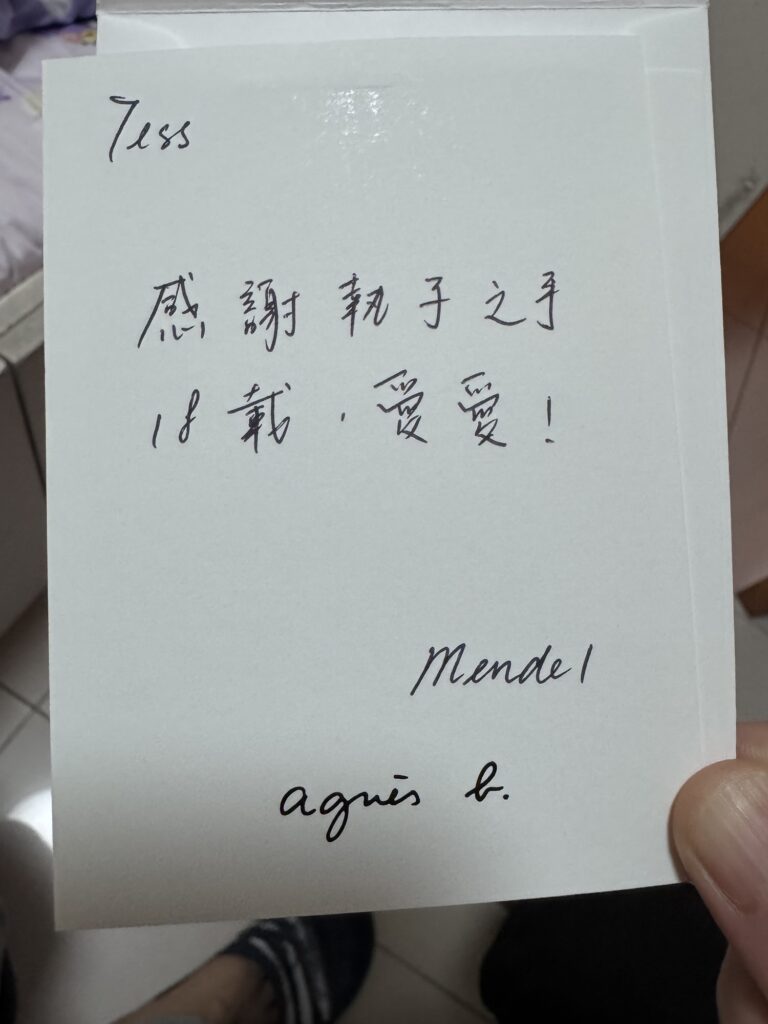 Tess
感謝執子之手
18載，愛愛！
Mendel
agnès b.